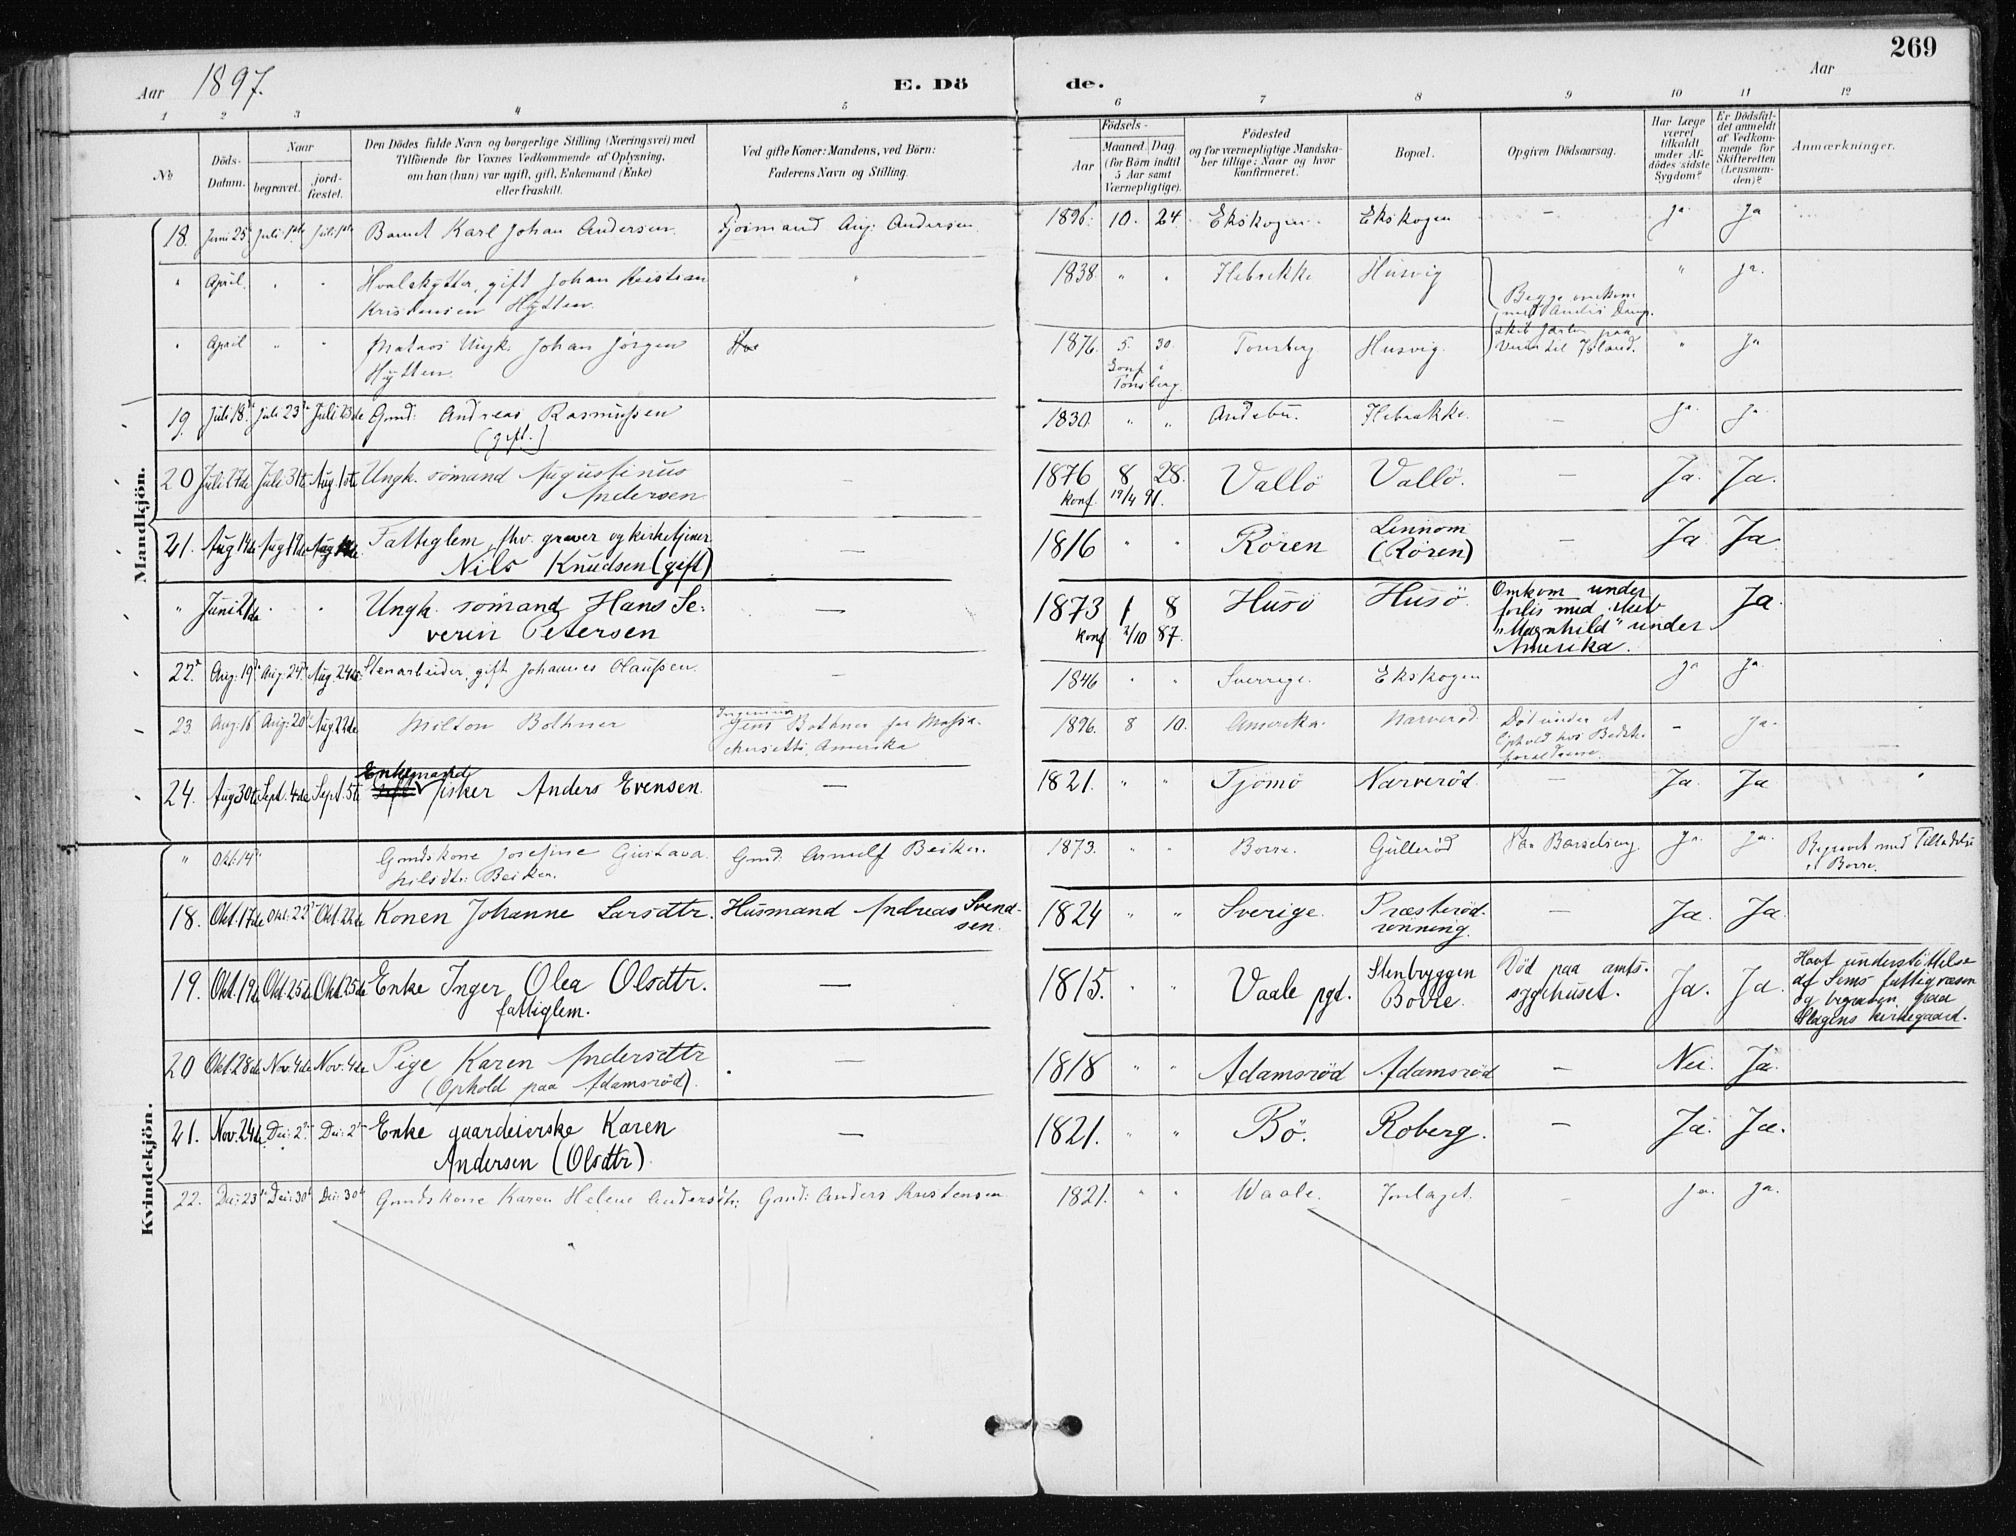 269
Aar 1897. E. Dö de. Aar
1 2 3 4 5 6 7 8 9 10 11 12
No Döds-Datum. Naar begravet. jord-fæstet. Den Dödes fulde Navn og borgerlige Stilling (Næringsvei) med Tilföiende for Voxnes Vedkommende af Oplysning, om han (hun) var ugift, gift, Enkemand (Enke) eller fraskilt. Ved gifte Koner: Mandens, ved Börn: Faderens Navn og Stilling. Födsels- Aar Maaned Dag (for Börn indtil 5 Aar samt Værnepligtige). Födested og for værnepligtige Mandskaber tillige: Naar og hvor konfirmeret. Bopæl. Opgiven Dödsaarsag. Har Læge været tilkaldt under Afdödes sidste Sygdom? Er Dödsfaldet anmeldt af Vedkommende for Skifteretten (Lensmanden)? Anmærkninger.
Mandkjön.
18. Juni 25 Juli 1ste Juli 1ste Barnet Karl Johan Andersen. Sjömand Aug. Andersen 1896. 10. 24. Ekskogen. Ekskogen — Ja Ja
" April " " Hvalskytter, gift Johan Kristian " 1838. " " Ilebrekke Husvig " ja.
Kristensen Hytten. Begge omkom
" April " " Matros Ungk. Johan Jörgen 1876. 5. 30. Tonsberg Husvig. " Ja
Hytten. Konf. Tonsberg
19. Juli 18 Juli 23 Juli 23de Gmd: Andreas Rasmussen — 1830. " " Andebu. Ilebrekke. — Ja. Ja.
(gift.)
20 Juli 27de Juli 31te Aug. 1ste Ungk. sömand Augustinus — 1876 8 28. Vallö Vallö. — Ja. Ja.
Andersen Konf. 19/4 91.
21. Aug 14de Aug 19de Aug de Fattiglem, fhv. graver og kirketjener — 1816 " " Rören Linnom — Ja Ja.
Nils Knudsen (gift) (Rören)
" Juni 21de " " Ungk. sömand Hans Se- — 1873 1 8 Husö Husö. Omkom under Ja.
verin Petersen konf 2/10 87. forlis med skib
"Magnhild" under
Amerika.
22. Aug. 19 Aug. 24 Aug. 24de Stenarbeider, gift Johannes Olaussen. — 1846 " " Sverrige. Ekskogen Ja Ja.
23. Aug. 16 Aug. 20 Aug. 22de Milton Bothner Ingeniör Jens Bothner fra Massa- 1896. 8 10. Amerika. Narveröd Död under et — Ja.
chusetts, Amerika Ophold hos Bedste-
forældrene.
24. Aug 30te Sept. 4de Sept. 5te Enkemand fisker Anders Evensen. — 1821. " " Tjömö Narveröd. — Ja. Ja
Kvindekjön.
" Okt. 14 Gmdskone Josefine Gustava Gmd. Arnulf Beiker. 1873. " " Borre. Gulleröd Barselseng. Ja. Ja. Begravet med Tilladelse
Nilsdtr. Beiker. i Borre.
18. Okt. 17de Okt. 22 Okt. 22de Konen Johanne Larsdtr. Husmand Andreas Svend- 1824 " " Sverige. Præsteröd- — Ja. Ja
sen. rönning.
19. Okt. 19de Okt. 25de Okt. 25de Enke Inger Olea Olsdtr. — 1815. Vaale pgd. Stenbryggen Död paa amts- Ja. Ja. Havt understöttelse
fattiglem. Borre. sygehuset. af Sems fattigvæsen
og begraven paa
Slagens kirkegaard.
20 Okt. 28de Nov. 4de Nov. 4de Pige Karen Andersdtr — 1818 " " Adamsröd Adamsröd — Nei. Ja.
(Ophold paa Adamsröd).
21. Nov. 24de Dec. 2 Dec. 2 Enke gaardeierske Karen — 1821. " " Bö. Roberg. — Ja. Ja.
Andersen (Olsdtr)
22. Dec. 23 Dec. 30 Dec. 30 Gmdskone Karen Helene Andersdtr: Gmd: Anders Kristensen 1821. " " Waale. — Ja. Ja.